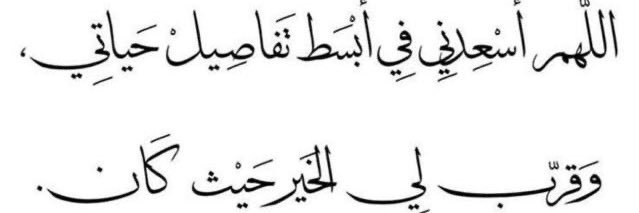 اللَّهم أسْعِدنِي فِي أبْسَط تَفَاصِيلْ حَياتِي،
وَقرّب لِي الخَير حَيْث كَان.